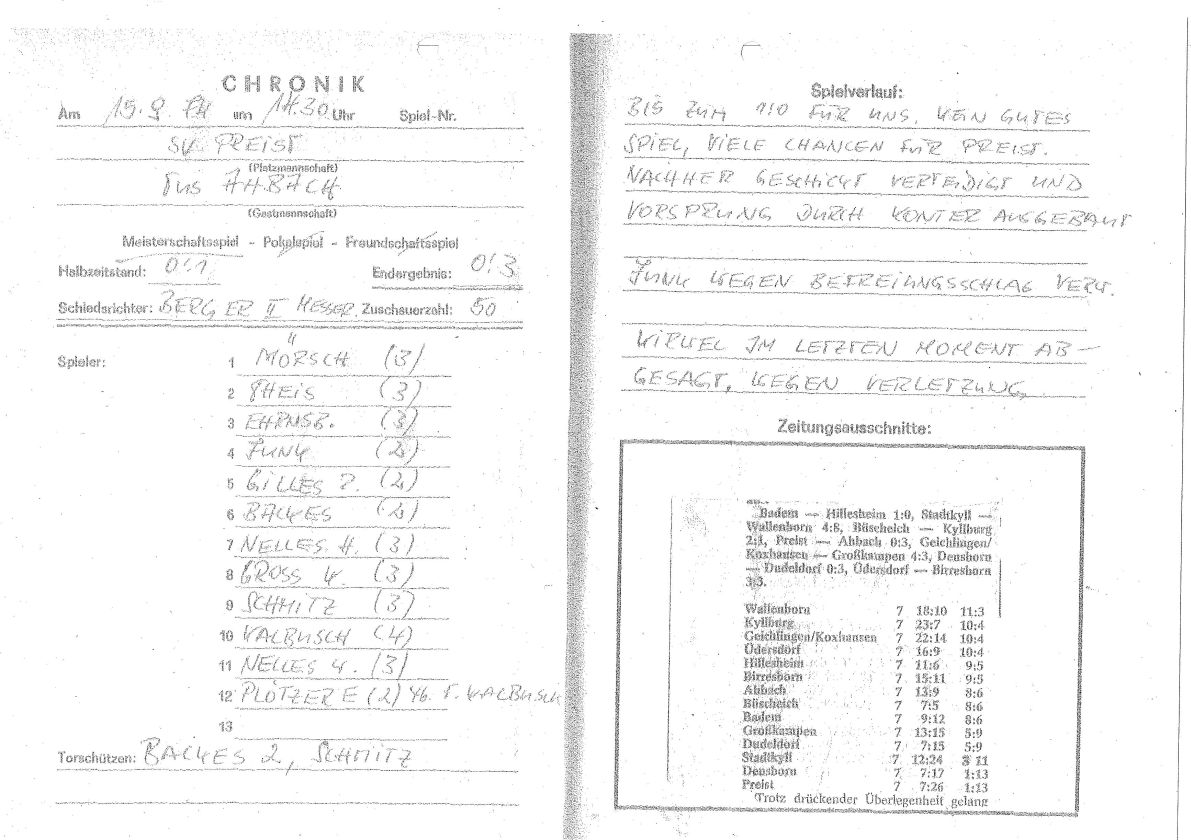 CHRONIK
Am 15.9. um 14.30 Uhr Spiel-Nr.
SV PREIST
(Platzmannschaft)
TuS AHBACH
(Gastmannschaft)
Meisterschaftsspiel - Pokalspiel - Freundschaftsspiel
Halbzeitstand: 0:1 Endergebnis: 0:3
Schiedsrichter: BERGER II MESSER. Zuschauerzahl: 50
Spieler: 1 MORSCH (3)
2 THEIS (3)
3 EHRNSB. (3)
4 JUNK (2)
5 GILLES P. (2)
6 BACKES (2)
7 NELLES H. (3)
8 GROSS K. (3)
9 SCHMITZ (3)
10 KALBUSCH (4)
11 NELLES K. (3)
12 PLÖTZER E (2) 46. F. KALBUSCH
13
Torschützen: BACKES 2, SCHMITZ
Spielverlauf:
BIS ZUM 1:0 FÜR UNS, KEIN GUTES
SPIEL, VIELE CHANCEN FÜR PREIST.
NACHHER GESCHICKT VERTEIDIGT UND
VORSPRUNG DURCH KONTER AUSGEBAUT
JUNK WEGEN BEFREIUNGSSCHLAG VERW.
KIRWEL IM LETZTEN MOMENT AB-
GESAGT, WEGEN VERLETZUNG,
Zeitungsausschnitte:
Badem — Hillesheim 1:0, Stadtkyll —
Wallenborn 4:8, Büscheich — Kyllburg
2:1, Preist — Ahbach 0:3, Geichlingen/
Koxhausen — Großkampen 4:3, Densborn
— Dudeldorf 0:3, Üdersdorf — Birresborn
3:3.
Wallenborn 7 18:10 11:3
Kyllburg 7 23:7 10:4
Geichlingen/Koxhausen 7 22:14 10:4
Üdersdorf 7 16:9 10:4
Hillesheim 7 11:6 9:5
Birresborn 7 15:11 9:5
Ahbach 7 13:9 8:6
Büscheich 7 7:5 8:6
Badem 7 9:12 8:6
Großkampen 7 13:15 5:9
Dudeldorf 7 7:15 5:9
Stadtkyll 7 12:24 3 11
Densborn 7 7:17 1:13
Preist 7 7:26 1:13
Trotz drückender Überlegenheit gelang